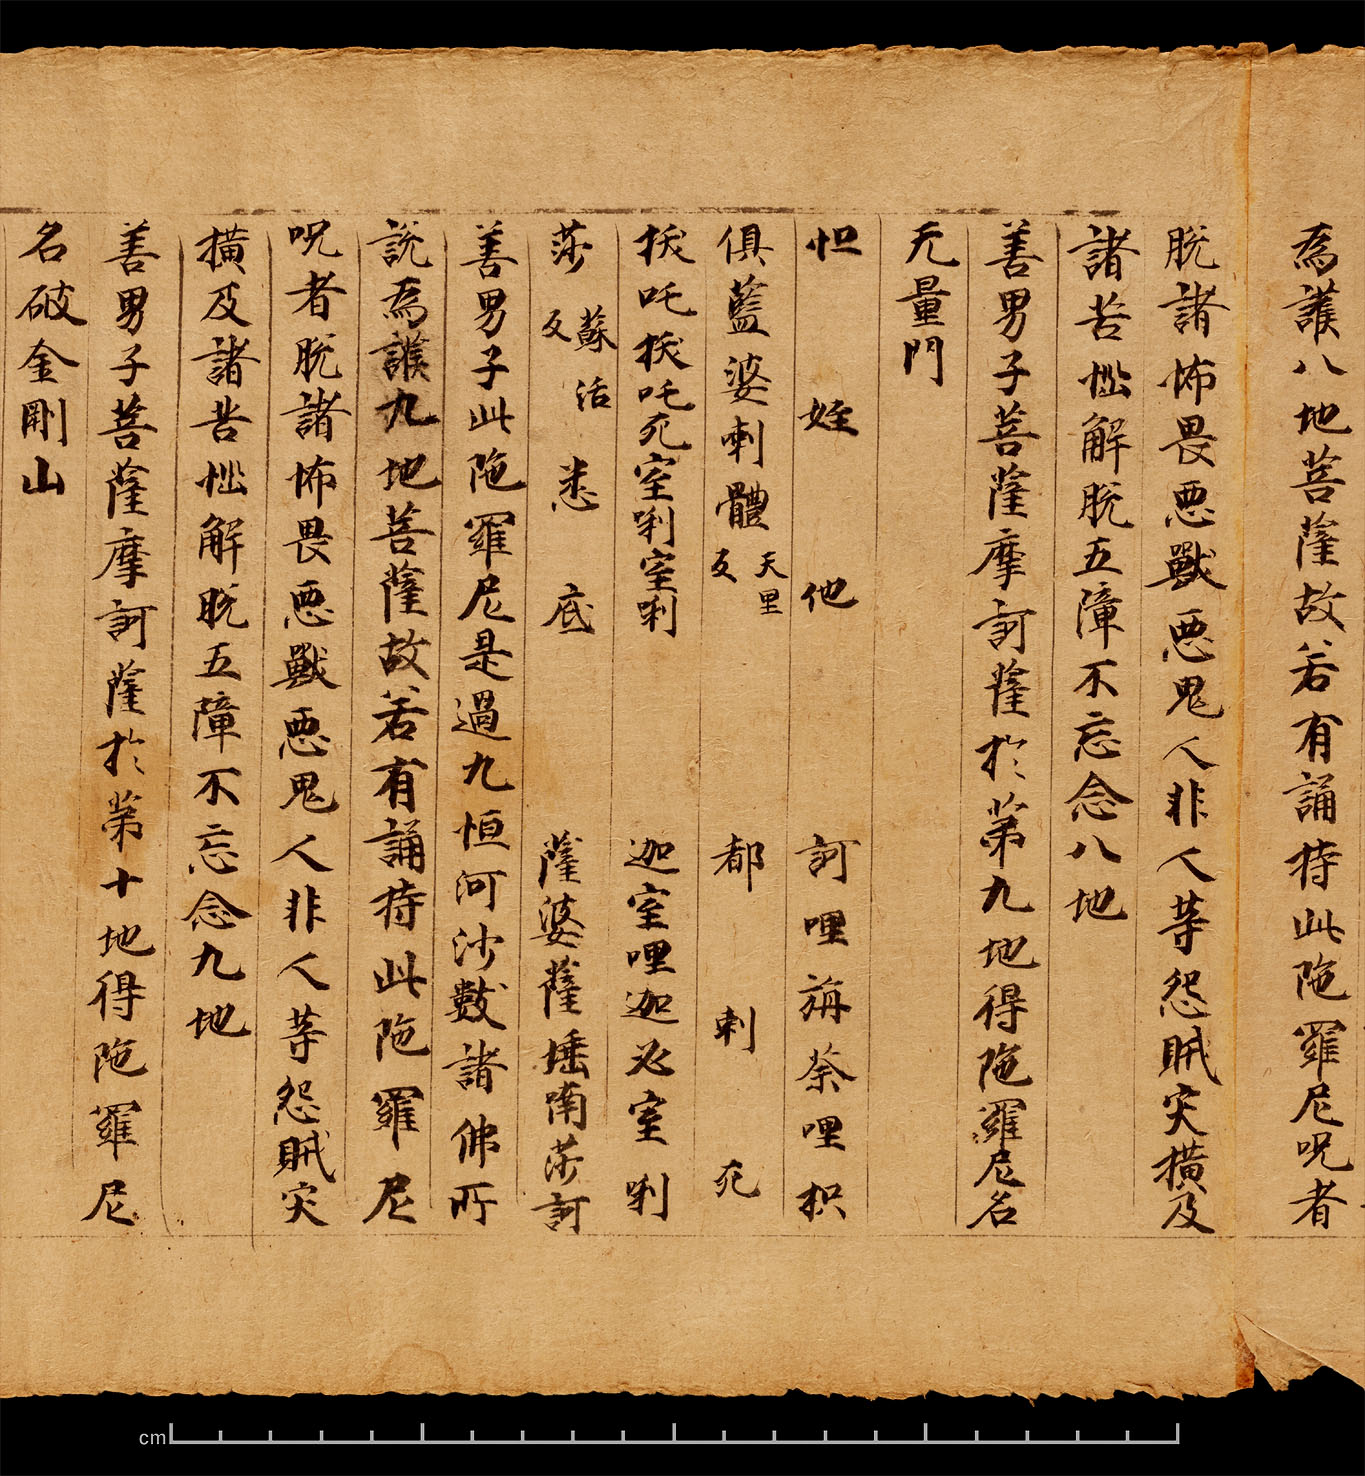 為護八地菩薩故若有誦持此陁羅尼呪者
脫諸怖畏惡獸惡鬼人非人等怨賊灾橫及
諸苦惱解脫五障不忘念八地
善男子菩薩摩訶薩於第九地得陁羅尼名
无量門
怛姪他訶哩旃荼哩枳
俱藍婆剌體天里反都剌死
拔吒拔吒死室唎室唎迦室哩迦必室唎
莎蘇活反悉底薩婆薩埵喃莎訶
善男子此陁羅尼是過九恒河沙數諸佛所
說為護九地菩薩故若有誦持此陁羅尼
呪者脫諸怖畏惡獸惡鬼人非人等怨賊灾
橫及諸苦惱解脫五障不忘念九地
善男子菩薩摩訶薩於第十地得陁羅尼
名破金剛山
cm